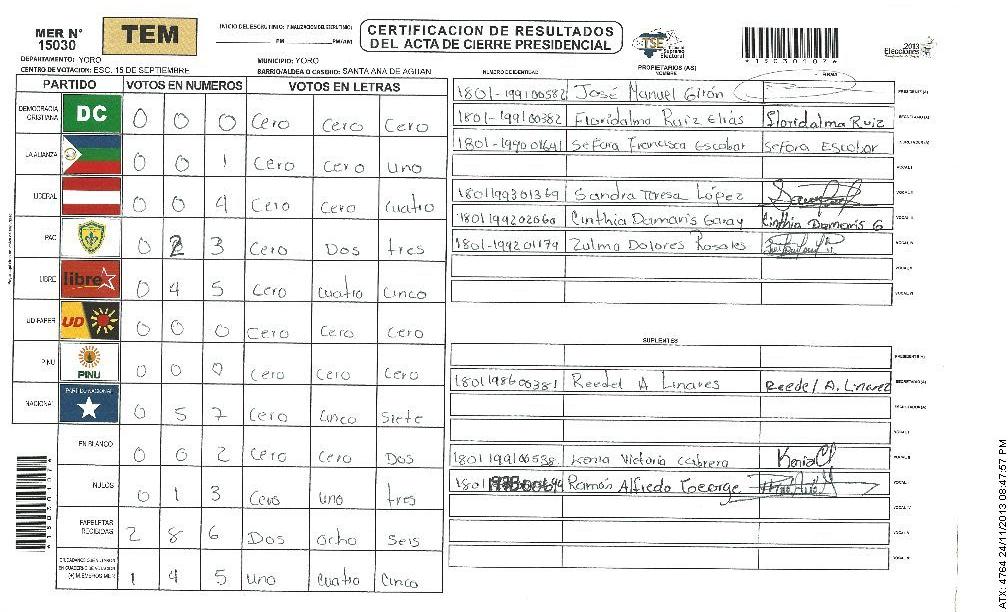 MER N° 15030
TEM
INICIO DEL ESCRUTINIO: FINALIZACION DEL ESCRUTINIO:
PM PM(AM)
CERTIFICACION DE RESULTADOS
DEL ACTA DE CIERRE PRESIDENCIAL
TSE Tribunal Supremo Electoral
*15030107*
2013 Elecciones
DEPARTAMENTO: YORO
MUNICIPIO: YORO
CENTRO DE VOTACION: ESC. 15 DE SEPTIEMBRE
BARRIO/ALDEA O CASERIO: SANTA ANA DE AGUAN
PARTIDO VOTOS EN NUMEROS VOTOS EN LETRAS
DEMOCRACIA CRISTIANA DC 0 0 0 Cero Cero Cero
LA ALIANZA 0 0 1 Cero Cero uno
LIBERAL 0 0 4 Cero Cero Cuatro
PAC 0 2 3 Cero Dos tres
LIBRE libre 0 4 5 Cero Cuatro Cinco
UD-FAPER UD 0 0 0 Cero Cero Cero
PINU PINU 0 0 0 Cero Cero Cero
NACIONAL PARTIDO NACIONAL 0 5 7 Cero Cinco Siete
EN BLANCO 0 0 2 Cero Cero Dos
NULOS 0 1 3 Cero uno tres
PAPELETAS RECIBIDAS 2 8 6 Dos ocho Seis
CIUDADANOS QUE VOTARON EN CUADERNO DE VOTACION (+) MIEMBROS MER 1 4 5 uno Cuatro Cinco
PROPIETARIOS (AS)
NUMERO DE IDENTIDAD NOMBRE FIRMA
1801-199100582 José Manuel Girón PRESIDENTE(A)
1801-199100382 Floridalma Ruiz Elías Floridalma Ruiz SECRETARIO(A)
1801-199001641 Sefora Francisca Escobar Sefora Escobar ESCRUTADOR(A)
VOCAL I
1801199301369 Sandra Teresa López VOCAL II
1801199202060 Cinthia Damaris Garay Cinthia Damaris G VOCAL III
1801-199201179 Zulma Dolores Rosales VOCAL IV
VOCAL V
VOCAL VI
SUPLENTES
PRESIDENTE(A)
1801198600381 Reedel A Linares Reedel A. Linarez SECRETARIO(A)
ESCRUTADOR(A)
VOCAL I
1801199100538 Kenia Victoria Cabrera Kenia VOCAL II
1801 Ramón Alfredo George VOCAL
VOCAL IV
VOCAL V
VOCAL VI
*15030107*
ATX: 4764 24/11/2013 08:47:57 PM